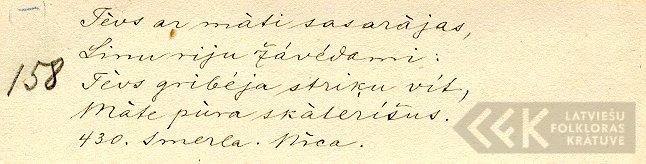 Tēvs ar māti sasarājas,
Linu riju žāvēdami:
158
Tēvs gribēja striķu vīt,
Māte pūra skāterīšus.
430. Smerla. Nīca.
LATVIEŠU
FOLKLORAS
KRĀTUVE